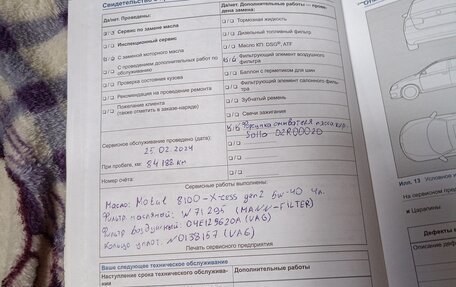 Свидетельство о
Да/нет. Проведены:
Да/нет. Дополнительные работы — проведена замена:
Сервис по замене масла
Тормозная жидкость
Инспекционный сервис
Дизельный топливный фильтр
С заменой моторного масла
Масло КП: DSG®, ATF
С проведением дополнительных работ по обслуживанию
Фильтрующий элемент воздушного фильтра
Баллон с герметиком для шин
Проверка состояния кузова
Фильтрующий элемент салонного фильтра
Рекомендация на проведение ремонта
Зубчатый ремень
Пожелание клиента
(также отметить в заказе-наряде)
Свечи зажигания
Сервисное обслуживание проведено (дата):
25.02.2024
При пробеге, км: 84 188 км
Номер счёта:
Сервисные работы выполнены:
Масло: Motul 8100-X-cess gen2 5w-40 4л.
Фильтр масляный: W 71295 (MANN-FILTER)
Фильтр воздушный: 04E129620A (VAG)
Кольцо уплот. N0138157 (VAG)
Печать сервисного предприятия
Ваше следующее техническое обслуживание
Наступление срока технического обслуживания
Дополнительные работы
Илл. 13
На сервисном
Царапины
Дефекты
Описание